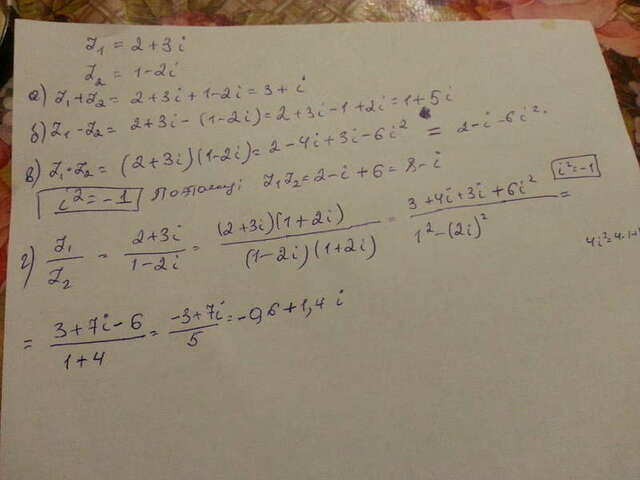 Z₁ = 2+3i
Z₂ = 1-2i
а) Z₁+Z₂ = 2+3i+1-2i = 3+i
б) Z₁-Z₂ = 2+3i-(1-2i) = 2+3i-1+2i = 1+5i
в) Z₁·Z₂ = (2+3i)(1-2i) = 2-4i+3i-6i² = 2-i-6i².
i²=-1 Поэтому; Z₁Z₂ = 2-i+6 = 8-i i²=-1
г) Z₁/Z₂ = (2+3i)/(1-2i) = (2+3i)(1+2i)/(1-2i)(1+2i) = (3+4i+3i+6i²)/(1²-(2i)²) =
4i²=4·1
= (3+7i-6)/(1+4) = (-3+7i)/5 = -0,6+1,4i